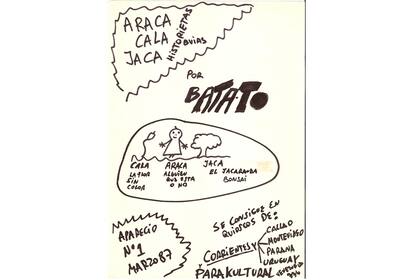 ARACA
CALA
JACA
HISTORIETAS
OBVIAS
POR
BATATO
CALA
LA FLOR
SIN
COLOR
ARACA
ALGUIEN
QUE ESTA
O NO
JACA
EL JACARANDA
BONSAI
APARECIO
Nº 1
MARZO 87
SE CONSIGUE EN
QUIOSCOS DE:
CORRIENTES Y
CALLAO
MONTEVIDEO
PARANA
URUGUAY
Y PARAKULTURAL